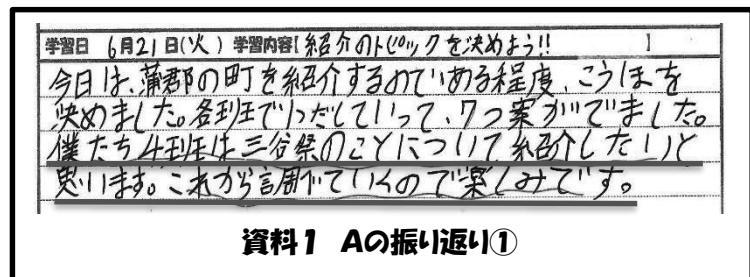 学習日 6月21日(火) 学習内容【紹介のトピックを決めよう!! 】
今日は、蒲郡の町を紹介するのである程度、こうほを
決めました。各班で1つだしていって、7つ案がでました。
僕たち4班は三谷祭のことについて紹介したいと
思います。これから調べていくので楽しみです。
資料1 Aの振り返り①